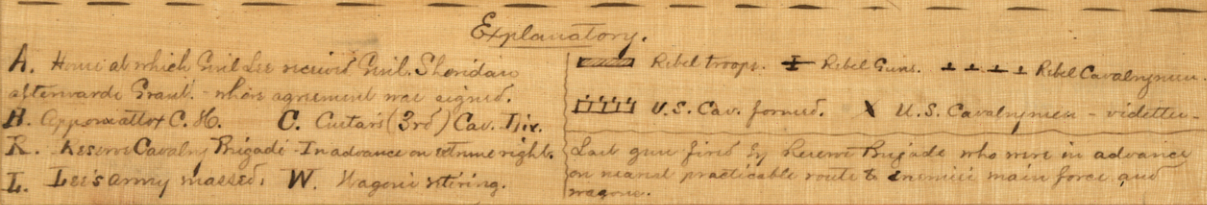 Explanatory.
A. House at which Genl. Lee received Genl. Sheridan
afterwards Grant. - where agreement was signed.
B. Appomattox C. H. C. Custar's (3rd) Cav. Div.
R. Reserve Cavalry Brigade - In advance on extreme right.
L. Lee's army massed. W. Wagons retiring.
Rebel troops. Rebel Guns. Rebel Cavalrymen.
U.S. Cav. formed. X U.S. Cavalrymen - videttes -
Last gun fired by Reserve Brigade who were in advance
on nearest practicable route to enemies main force and
wagons.